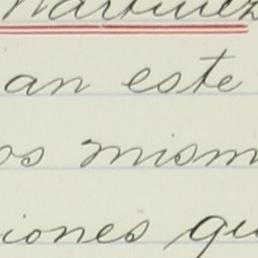 Martinez
an este
os mism
iones qu